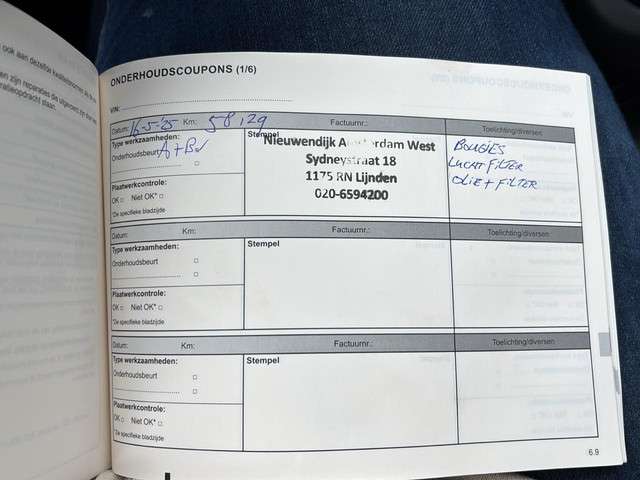 ook aan dezelfde kwaliteitsnormen
en zijn reparaties die uitgevoerd zijn
ratieopdracht staan.
ONDERHOUDSCOUPONS (1/6)
VIN:
Datum: 16-5-'25 Km: 58129 Factuurnr.: Toelichting/diversen
Type werkzaamheden:
Onderhoudsbeurt A+B
Stempel
Nieuwendijk Amsterdam West
Sydneystraat 18
1175 RN Lijnden
020-6594200
BOUGIES
LUCHTFILTER
OLIE + FILTER
Plaatwerkcontrole:
OK □ Niet OK* □
*Zie specifieke bladzijde
Datum: Km: Factuurnr.: Toelichting/diversen
Type werkzaamheden:
Stempel
Onderhoudsbeurt □
□
Plaatwerkcontrole:
OK □ Niet OK* □
*Zie specifieke bladzijde
Datum: Km: Factuurnr.: Toelichting/diversen
Type werkzaamheden:
Stempel
Onderhoudsbeurt □
□
Plaatwerkcontrole:
OK □ Niet OK* □
*Zie specifieke bladzijde
6.9